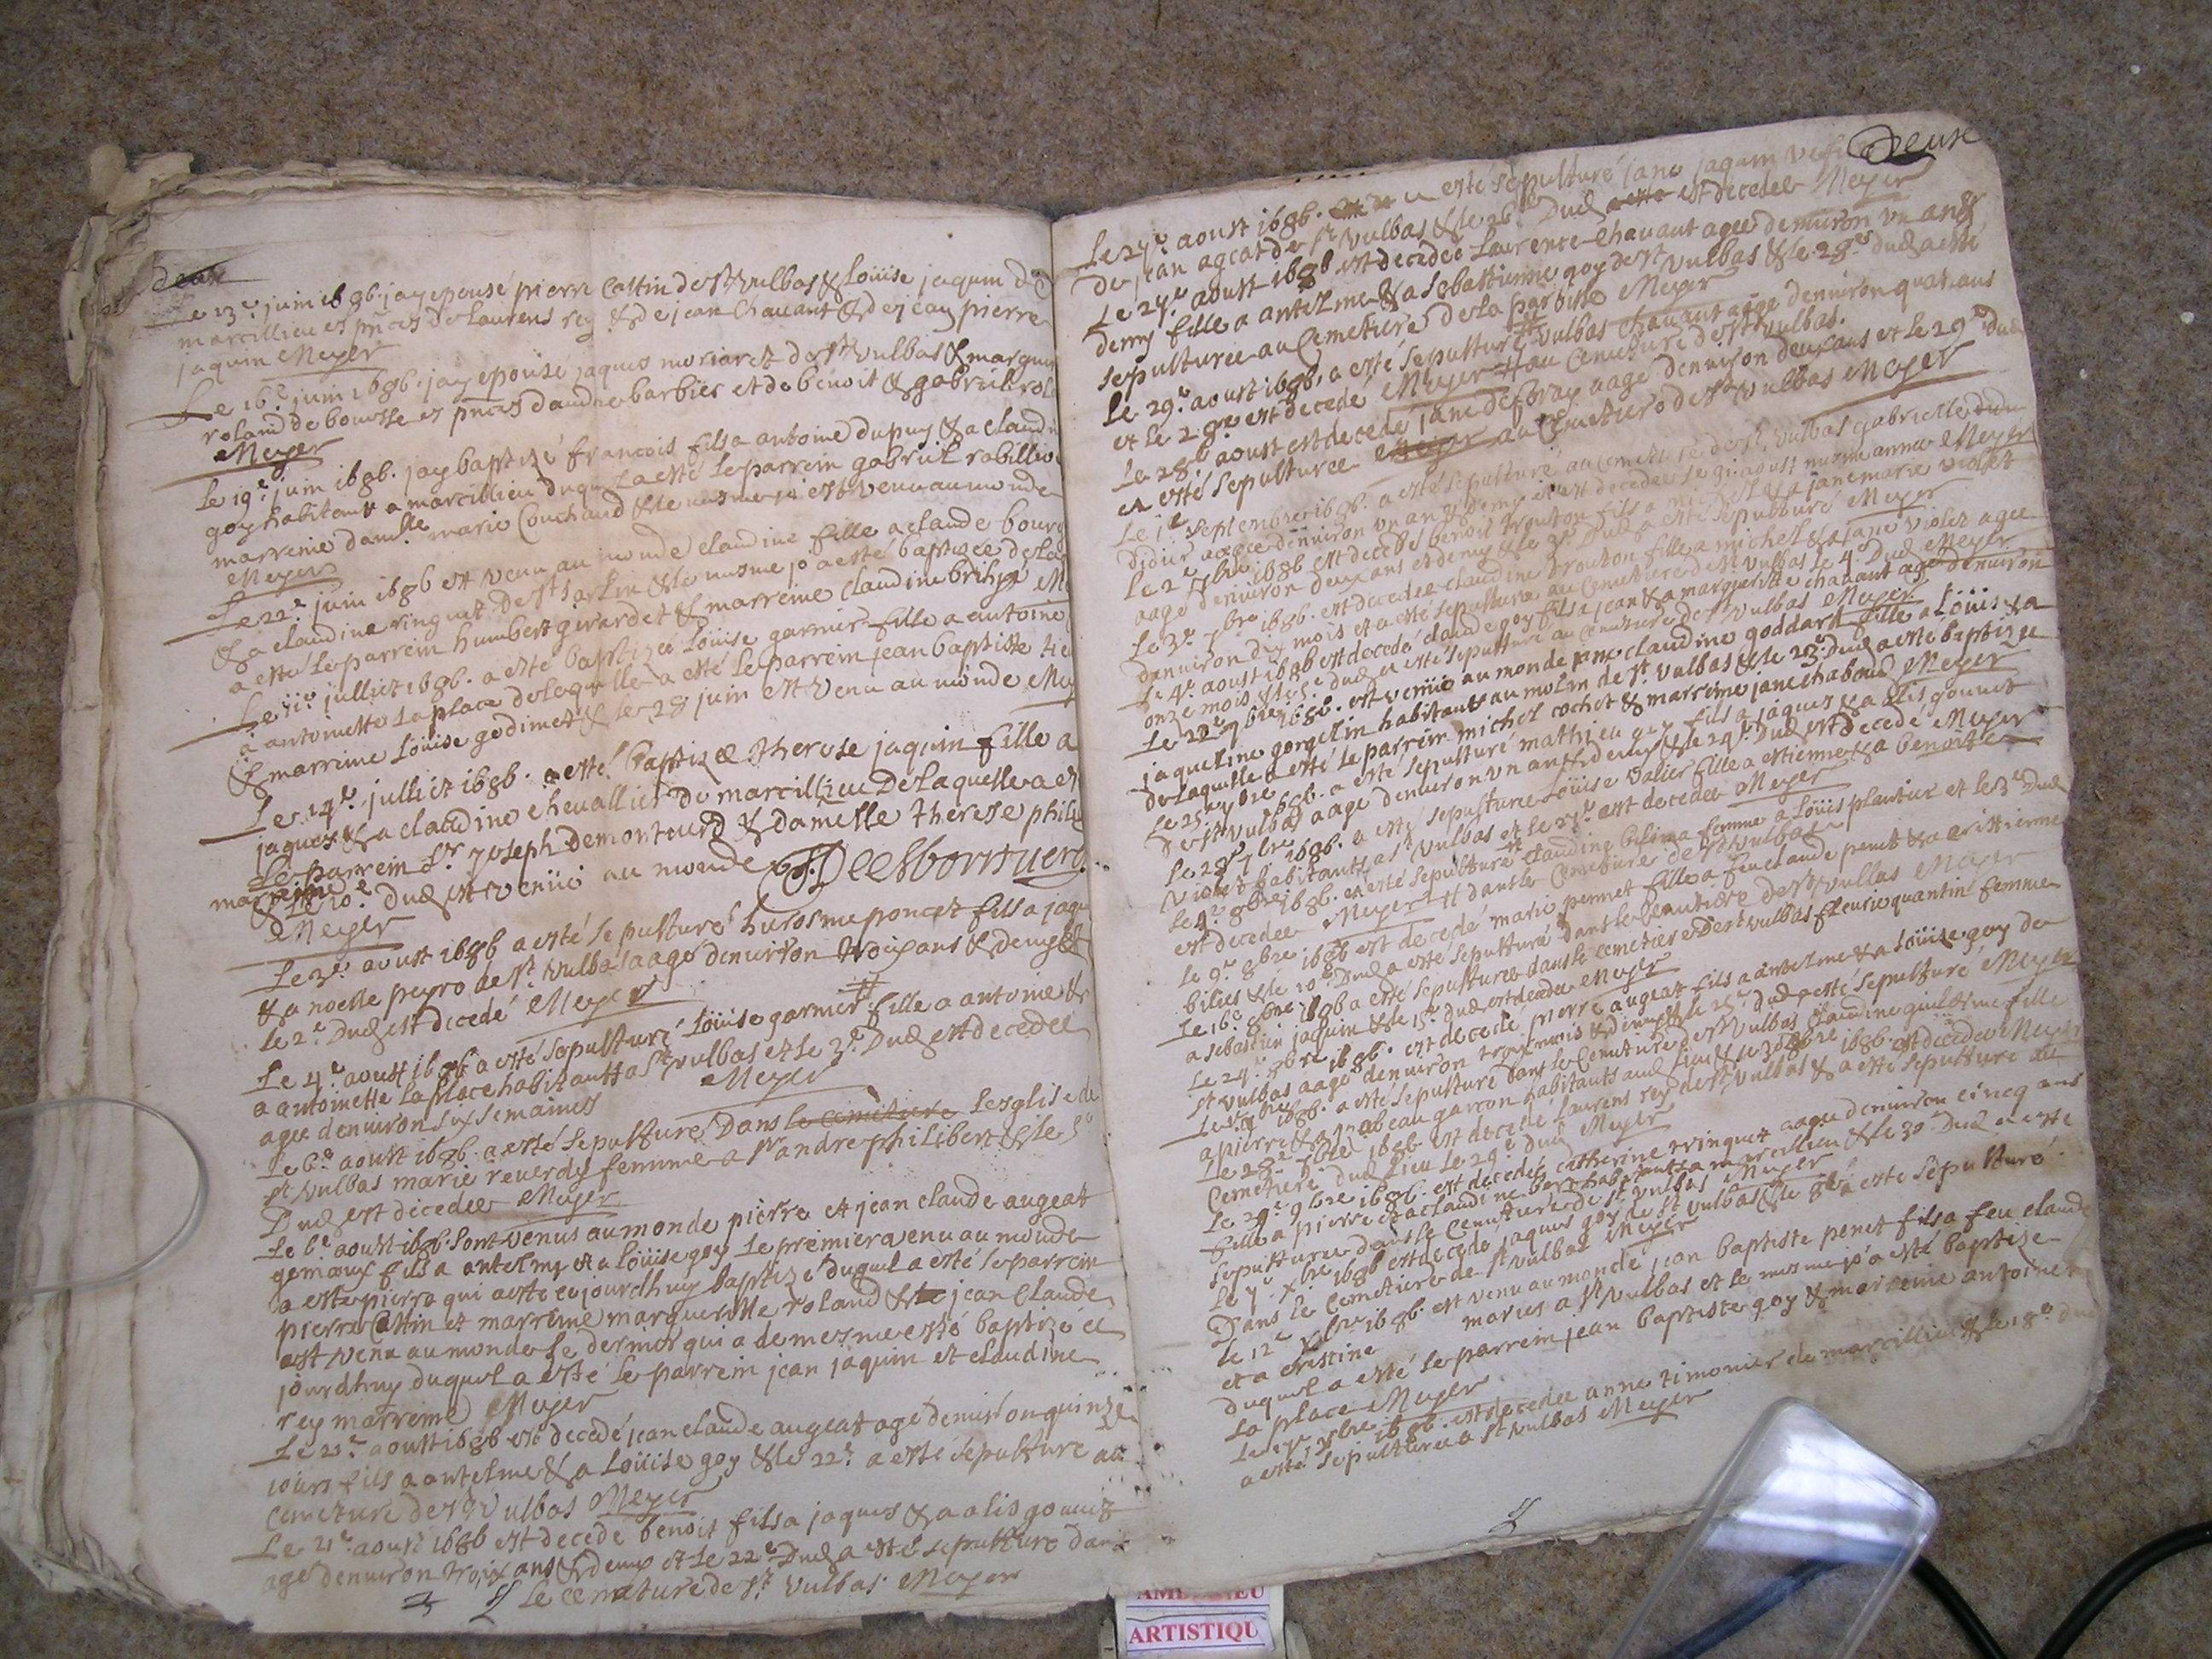 deux
Le 13e juin 1686. jay epousé pierre Cattin de st vulbas & Loüise jaquin de
marcillieu es pnces de Laurens rey & de jean Chavant & de jean pierre
jaquin Meyer
Le 16e juin 1686. jay epousé jaques moriaret de st vulbas & margue
roland de bourse es pnces dandre barbier et de benoit & gabriel rola
Meyer
Le 19e juin 1686. jay baptizé francois fils a antoine dupuy & a claudi
goy habitant a marcillieu duquel a esté le parrein gabriel robillio
marreine damlle marie Couchaud & le mesme jo est venu au monde
Meyer
Le 22e juin 1686 est venu au monde claudine fille a claude bourg
& a claudine ringuet de st sorlin & le mesme jo a esté baptizée de laq
a esté le parrein humbert girardet & marreine claudine
Le 11e julliet 1686. a esté baptizée Loüise garnier fille a antoine
a antoinette la place de laquelle a esté le parrein jean baptiste
& marreine Loüise godinet & le 28 juin est venu au monde Mey
Le 14e julliet 1686. a esté baptizée therese jaquin fille a
jaques & a claudine chevallier de marcillieu De laquelle a est
Le parrein sr joseph demontourd & damelle therese phili
marreine & le 10e Dud est venüe au monde
Meyer
Le 3e aoust 1686 a esté sepulturé hierosme poncet fils a jaqu
& a noelle peyro de st vulbas aagé denuiron troix ans & demy &
Le 2e Dud est decedé Meyer
Le 4e aoust 1686 a esté sepulturé Loüise garnier fille a antoine &
a antoinette la place habitant a st vulbas et le 3e Dud est decedée
agée denuiron six semaines Meyer
Le 6e aoust 1686. a esté sepulturé Dans le cemeture Lesglise de
st vulbas marie reuerdy femme a sr andre philibert & le 5e
Dud est decedée Meyer
Le 6e aoust 1686. sont venus au monde pierre et jean claude augeat
gemaux fils a antelme et a Loüise goy Le premier venu au monde
a esté pierre qui a esté ce jourdhuy baptizé duquel a esté le parrein
pierre Cattin et marreine marguerite roland & jean claude
est venu au monde le dernier qui a de mesme esté baptizé ce
jourdhuy duquel a esté le parrein jean jaquin et claudine
rey marreine Meyer
Le 21e aoust 1686 est decedé jean claude augeat agé denuiron quinze
iours fils a antelme & a Loüise goy & le 22e a esté sepulturé au
Cemeture de st Vulbas Meyer
Le 21e aoust 1686 est decedé benoit fils a jaques & a alis gounet
agé denuiron troix ans & demy et le 22e Dud a esté sepulturé dans
le cemeture de st vulbas. Meyer
Deux
Le 27e aoust 1686. a esté sepulturé jane jaquin
de jean ageat de st vulbas & le 26e Dud est decedée Meyer
Le 27e aoust 1686 est decedée Laurence Chavant agée denuiron un an &
demy fille a antelme & a sebastienne goy de st vulbas & le 28e dud a esté
sepulturée au Cemetiere de la paroisse Meyer
Le 29e aoust 1686, a esté sepulturé vulbas Chavant agé denuiron quat ans
et le 28e est decedé Meyer au Cemeture de st vulbas.
Le 28e aoust est decedé jane aagé denuiron deux ans et le 29e Dud
a esté sepulturée au Cemetiere de st vulbas Meyer
Le 1er septembre 1686. a esté sepulturé au cemeture de st vulbas gabrielle
didier aagée denuiron un an & demy et est decedée le 31 aoust Meyer
Le 2e 7bre 1686 est decedé benoit trouton fils a michel & a jane marie violet
aagé denuiron deux ans et demy & le 3e Dud a esté sepulturé Meyer
Le 3e 7bre 1686. est decedée claudine trouton fille a michel & a jane violet agée
denuiron dix mois et a esté sepulturé au Cemeture de st vulbas le 4e Dud Meyer
Le 4e aoust 1686 est decedé claude goy fils a jean & a marguerite chavant agé denuiron
onze mois & le 5e dud a esté sepulturé au cemeture de st vulbas Meyer
Le 22e 7bre 1686. est venüe au monde claudine goddard fille a Loüis & a
jaqueline habitants au molin de st vulbas & le 23e Dud a esté baptizée
de laquelle a esté le parrein michel cochet & marreine jane chaboud Meyer
Le 25e 7bre 1686. a esté sepulturé mathieu fils a jaques & a alis gounet
de st vulbas aagé denuiron un an & demy & le 24e Dud est decedé Meyer
Le 28e 7bre 1686. a esté sepulturée Loüise valier fille a estienne & a benoitte
violet habitants a st vulbas et le 27e est decedée Meyer
Le 4e 8bre 1686. a esté sepulturé claudine femme a Loüis plantier et le 3e Dud
est decedée Meyer dans le cemeture de st vulbas
Le 9e 8bre 1686 est decedé marie pennet fille a feu claude penet & a cristienne
& le 10e Dud a esté sepulturé dans le Cemetiere de st vulbas Meyer
Le 16e 8bre 1686 a esté sepulturée dans le cemetiere de st vulbas fleurie quantin femme
a sebastien jaquin & le 15e dud est decedée Meyer
Le 24e 8bre 1686. est decedé pierre augeat fils a antelme & a Loüise goy de
st vulbas aagé denuiron troix mois & demy & le 25e Dud a esté sepulturé Meyer
1686. a esté sepulturé dans le Cemeture de st vulbas claudine fille
a pierre & a garcon habitants aud lieu & le 30e 8bre 1686. est decedée Meyer
Le 28e 1686. est decedé Laurens rey de st vulbas & a esté sepulturé au
Cemetiere dud Lieu le 29e dud Meyer
Le 29e 9bre 1686. est decedée catherine ringuet aagée denuiron cincq ans
fille a pierre et a claudine habitants a marcillieu & le 30e Dud a esté
sepulturée dans le cemeture de st vulbas Meyer
Le 7e xbre 1686 est decedé jaques goy de st vulbas & le 8e a esté sepulturé
Dans le Cemetiere de st vulbas Meyer
Le 12e xbre 1686. est venu au monde jean baptiste penet fils a feu claude
et a cristine mariés a st vulbas et le mesme jo a esté baptizé
duquel a esté le parrein jean baptiste goy & marreine antoinette
La place Meyer
Le 17e xbre 1686. est decedée anne timonier de marcillieu & le 18e dud
a esté sepulturée a st vulbas Meyer
ARTISTIQU